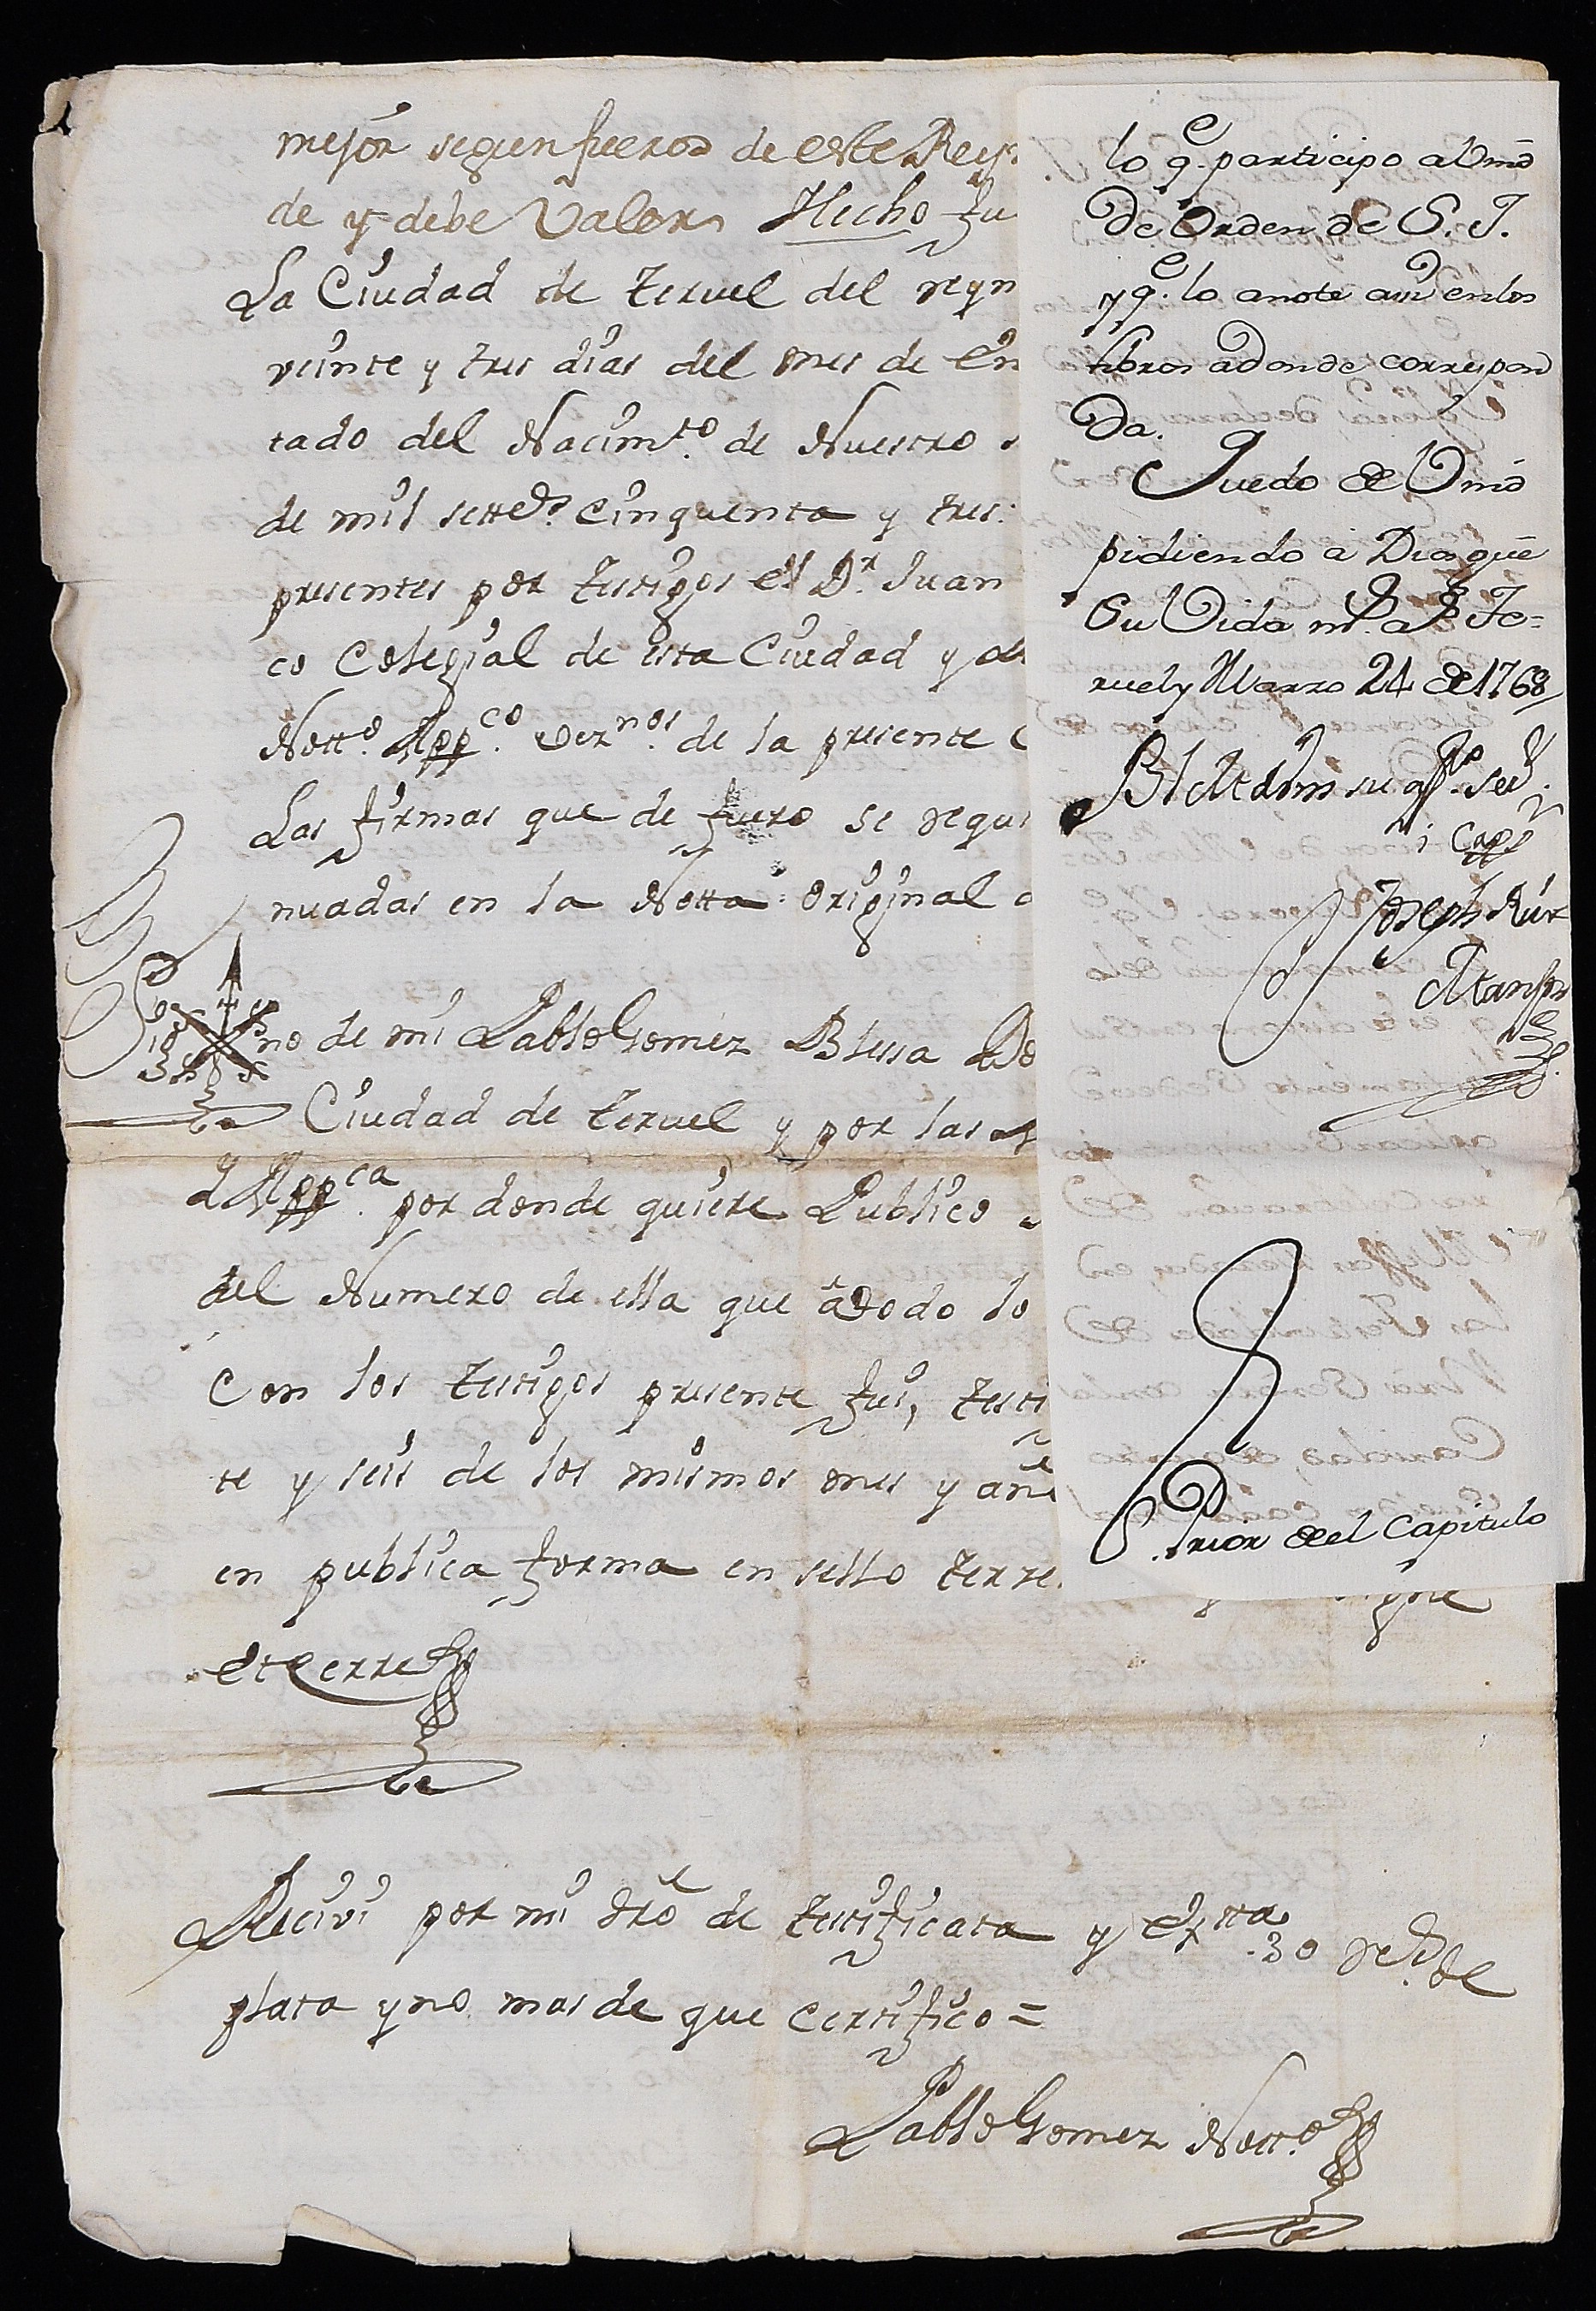 mejór segun fueros de este Rey
de y debe Valer Hecho fu
La Ciudad de teruel del reyn
veinte y tres dias del mes de En
tado del Nacim.to de Nuestro
de mil sette.s cinquenta y tres:
presentes por testigos el D.r Juan
co Colegial de esta Ciudad y
Nott.o App.co vez.nos de la presente C
Las firmas que de fuero se requi
nuadas en la Notta original
Sig no de mi Pablo Gomez Blessa Do
Ciudad de teruel y por las
App.ca por donde quiere Publico
del Numero de ella que à todo lo
con los testigos presente fui, testi
te y seis de los mismos mes y añ
en publica forma en sello terze
signe
et cerre
Recivi por mi dro de testificata y extta 30 re.s de
plata y no mas de que certifico =
Pablo Gomez Nott.o
lo q.e participo a Vmd
de Orden de S. I.
y q.e lo anote assi en los
libros adonde correspon
da.
Quedo de Vmd
pidiendo a Dios gūe
Su Vida m.s a.s Te=
ruel y Marzo 24 de 1768
BLM de Vm su af.to ser.
i Capp
Joseph Ruiz
Prior del Capitulo